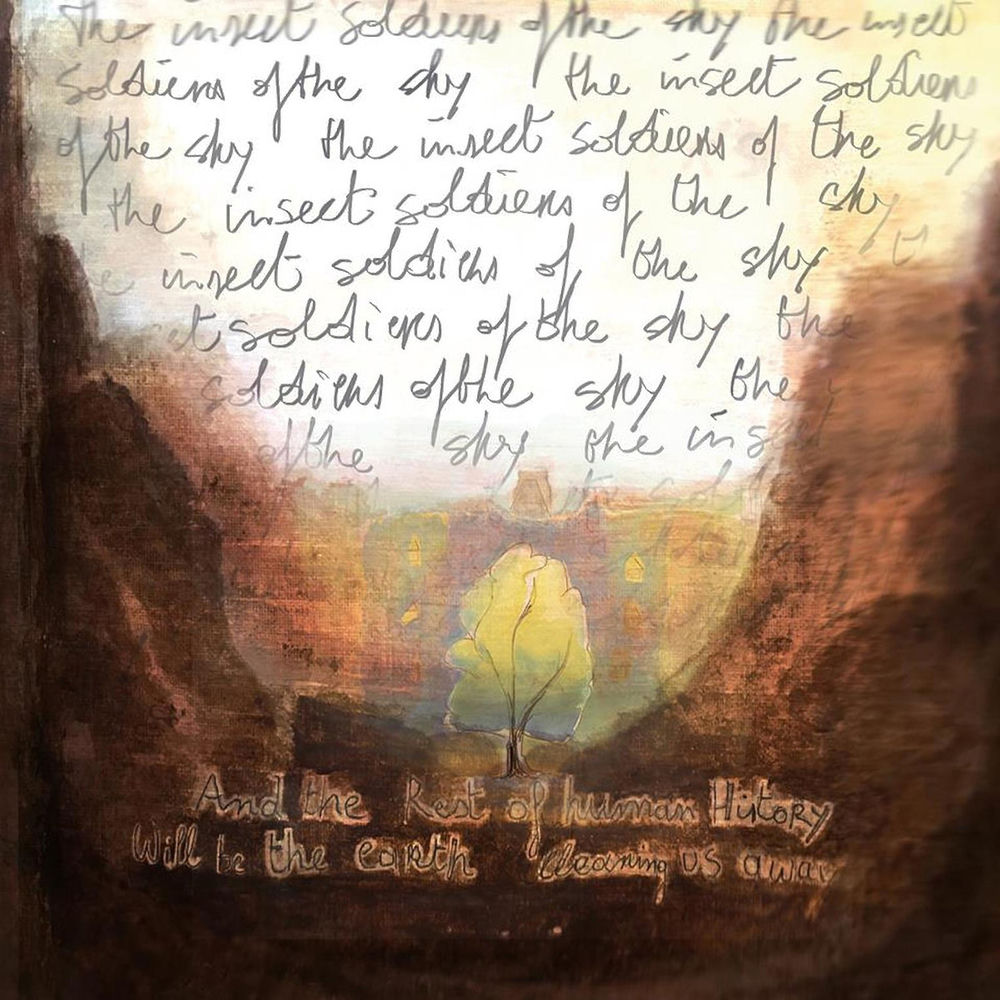 The insect soldiers of the sky the insect
soldiers of the sky the insect soldiers
of the sky the insect soldiers of the sky
the insect soldiers of the sky
insect soldiers of the sky
soldiers of the sky the
soldiers of the sky the
of the sky the ins
And the Rest of human History
Will be the earth cleaning us away